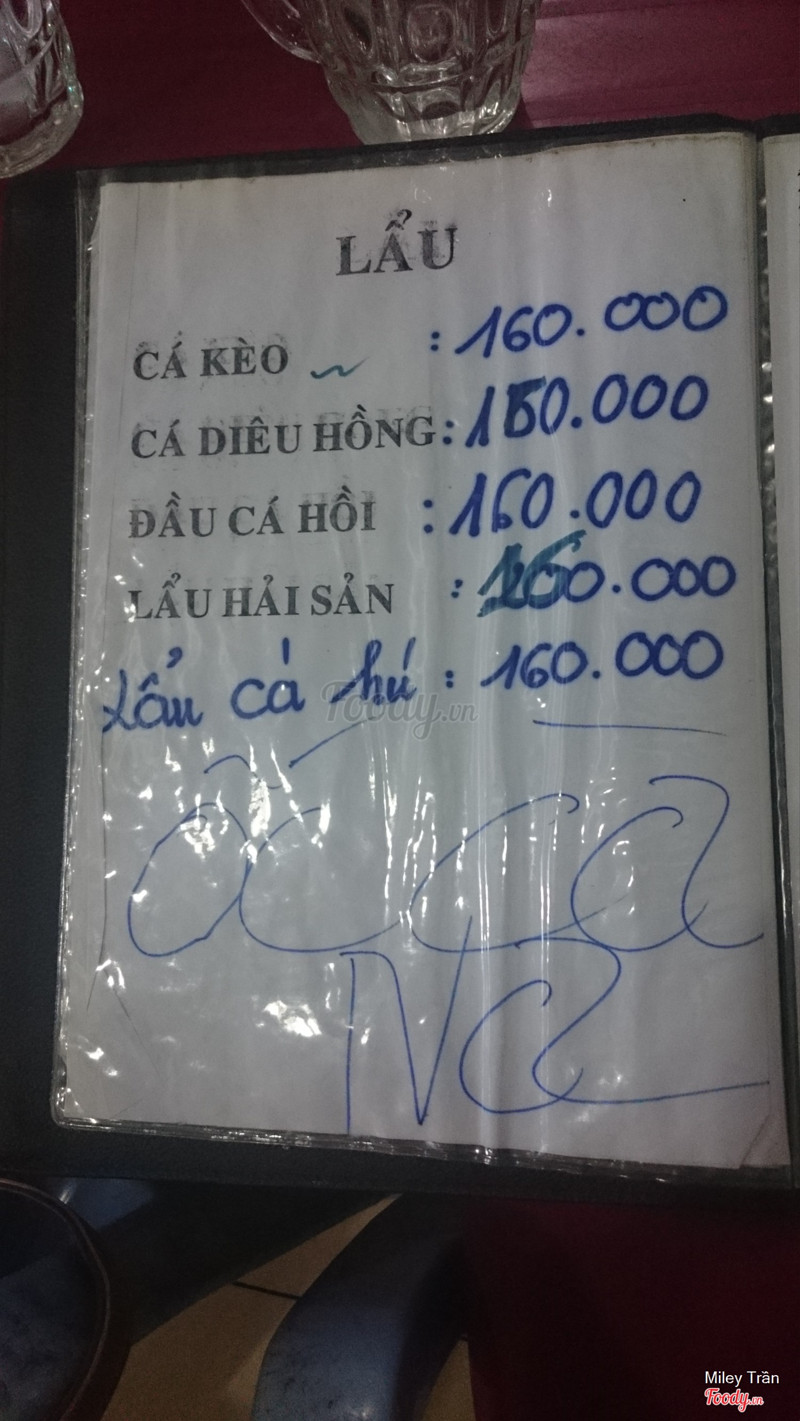 LẨU
CÁ KÈO : 160.000
CÁ DIÊU HỒNG : 160.000
ĐẦU CÁ HỒI : 160.000
LẨU HẢI SẢN : 160.000
Lẩu cá hú : 160.000
Foody.vn
ỐC CÀ
NA
Miley Trần
Foody.vn